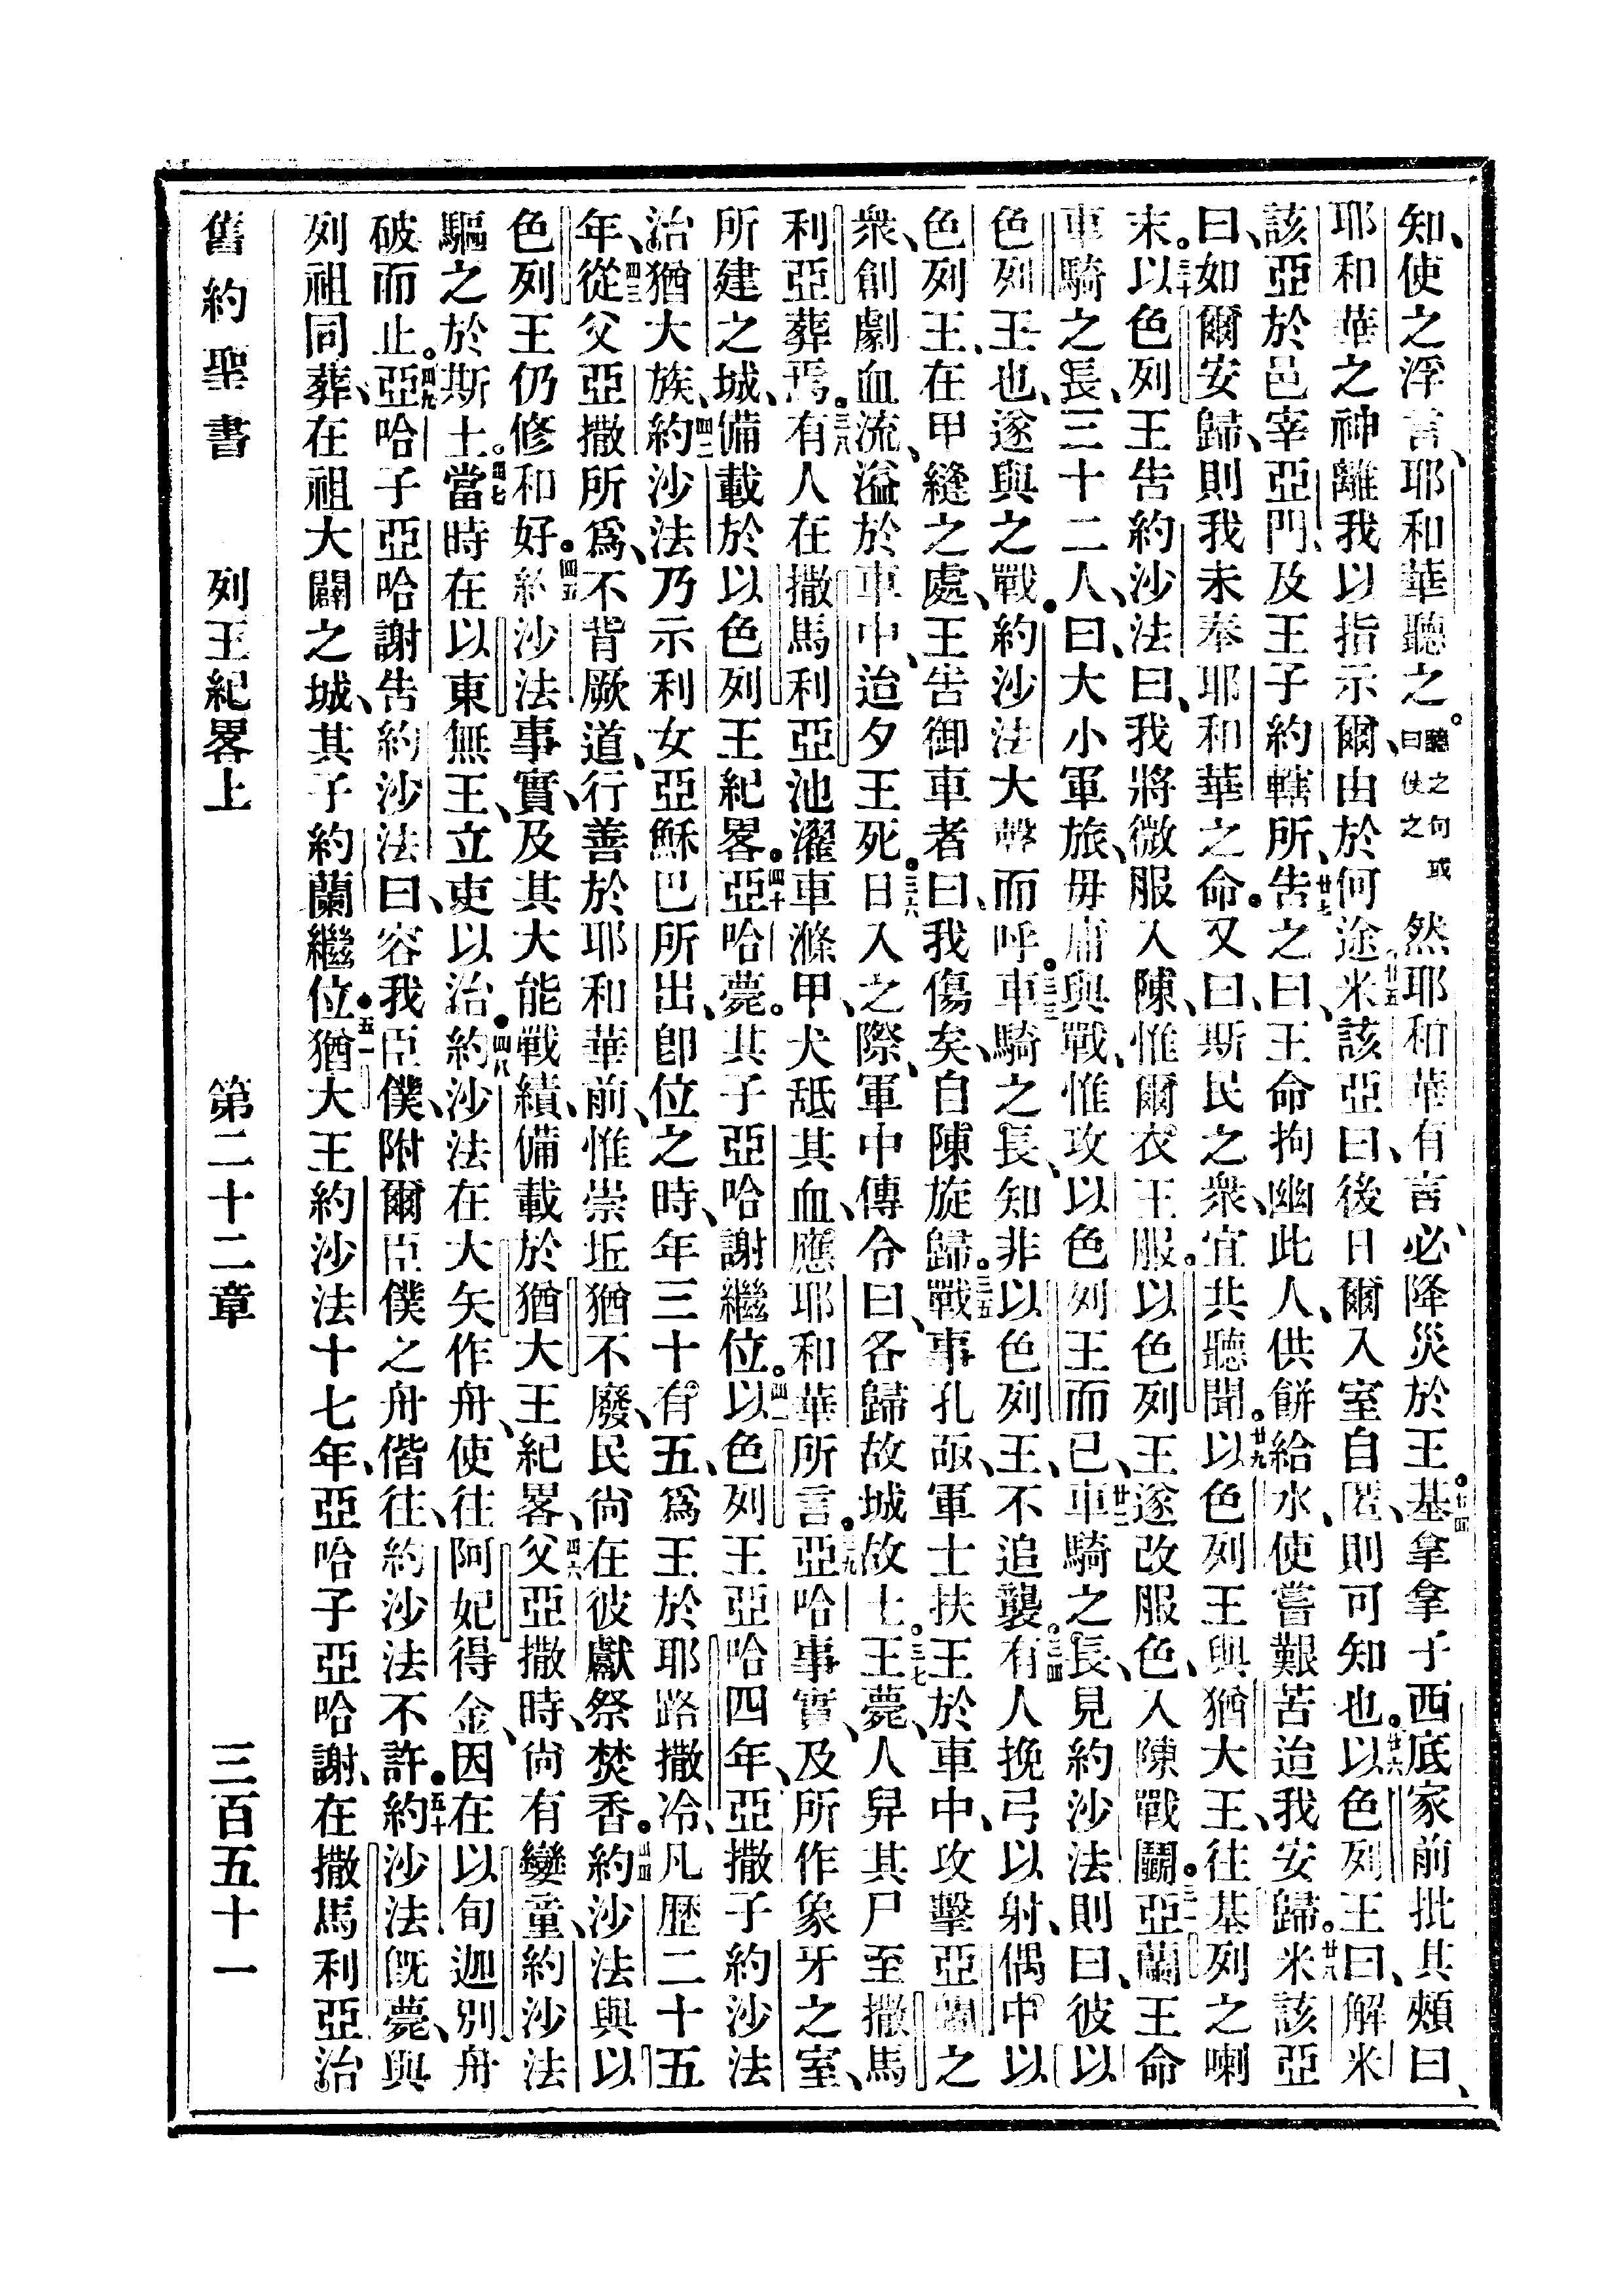 知、使之浮言、耶和華聽之。聽之句或曰使之然耶和華有言、必降災於王。廿四基拿拿子西底家前批其頰曰、
耶和華之神離我以指示爾、由於何途、廿五米該亞曰、後日爾入室自匿、則可知也。廿六以色列王曰、解米
該亞於邑宰亞門、及王子約轄所、廿七告之曰、王命拘幽此人、供餅給水、使嘗艱苦迨我安歸。廿八米該亞
曰、如爾安歸、則我未奉耶和華之命。又曰、斯民之衆、宜共聽聞。廿九以色列王與猶大王、往基列之喇
末。三十以色列王告約沙法曰、我將微服入陳、惟爾衣王服。以色列王遂改服色、入陳戰鬭。三一亞蘭王命
車騎之長、三十二人、曰、大小軍旅、毋庸與戰、惟攻以色列王而已、卅二車騎之長、見約沙法則曰、彼以
色列王也、遂與之戰。約沙法大聲而呼。三三車騎之長、知非以色列王、不追襲。三四有人挽弓以射、偶中以
色列王、在甲縫之處、王告御車者曰、我傷矣、自陳旋歸。三五戰事孔亟、軍士扶王於車中、攻擊亞蘭之
衆、創劇血流、溢於車中、迨夕王死。三六日入之際、軍中傳令曰、各歸故城故土。三七王薨、人舁其尸至撒馬
利亞葬焉。三八有人在撒馬利亞池濯車滌甲、犬舐其血、應耶和華所言。三九亞哈事實、及所作象牙之室、
所建之城、備載於以色列王紀畧。四十亞哈薨。其子亞哈謝繼位。四一以色列王亞哈四年、亞撒子約沙法
治猶大族、四二約沙法乃示利女亞穌巴所出、卽位之時、年三十有五、爲王於耶路撒冷、凡歷二十五
年、四三從父亞撒所爲、不背厥道、行善於耶和華前、惟崇坵猶不廢、民尙在彼獻祭焚香。四四約沙法與以
色列王仍修和好。四五約沙法事實、及其大能戰績、備載於猶大王紀畧、四六父亞撒時、尙有孌童、約沙法
驅之於斯土。四七當時在以東無王、立吏以治。四八約沙法在大矢作舟、使往阿妃得金、因在以旬迦別舟
破而止。四九亞哈子亞哈謝告約沙法曰、容我臣僕、附爾臣僕之舟偕往、約沙法不許。五十約沙法旣薨、與
列祖同葬、在祖大闢之城、其子約蘭繼位。五一猶大王約沙法十七年、亞哈子亞哈謝、在撒馬利亞治
舊約聖書 列王紀畧上 第二十二章 三百五十一